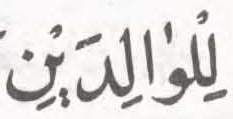 لِلْوٰالِدَيْنِ